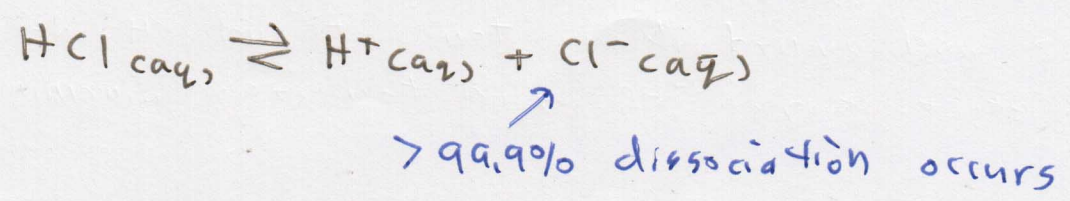 HCl (aq) ⇌ H⁺ (aq) + Cl⁻ (aq)
> 99.9% dissociation occurs